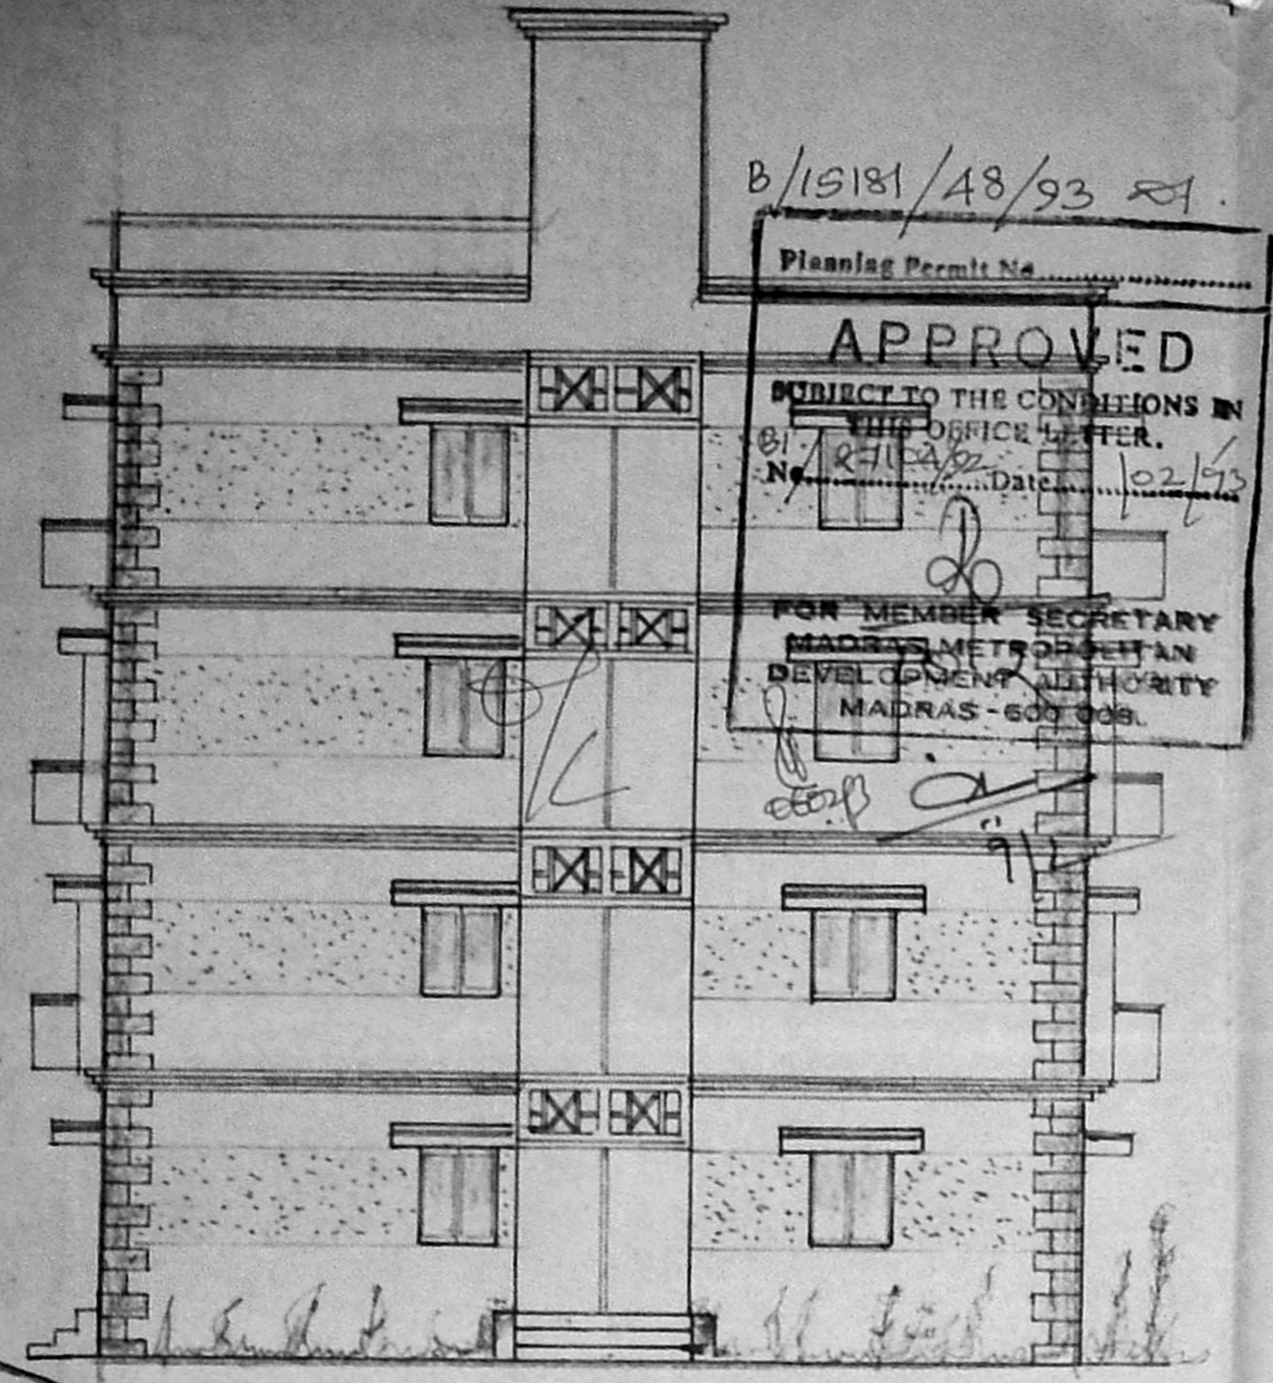 B/15181/48/93
Planning Permit No..............................
APPROVED
SUBJECT TO THE CONDITIONS IN
THIS OFFICE LETTER.
No..........................Date........../02/93
FOR MEMBER SECRETARY
MADRAS METROPOLITAN
DEVELOPMENT AUTHORITY
MADRAS - 600 008.